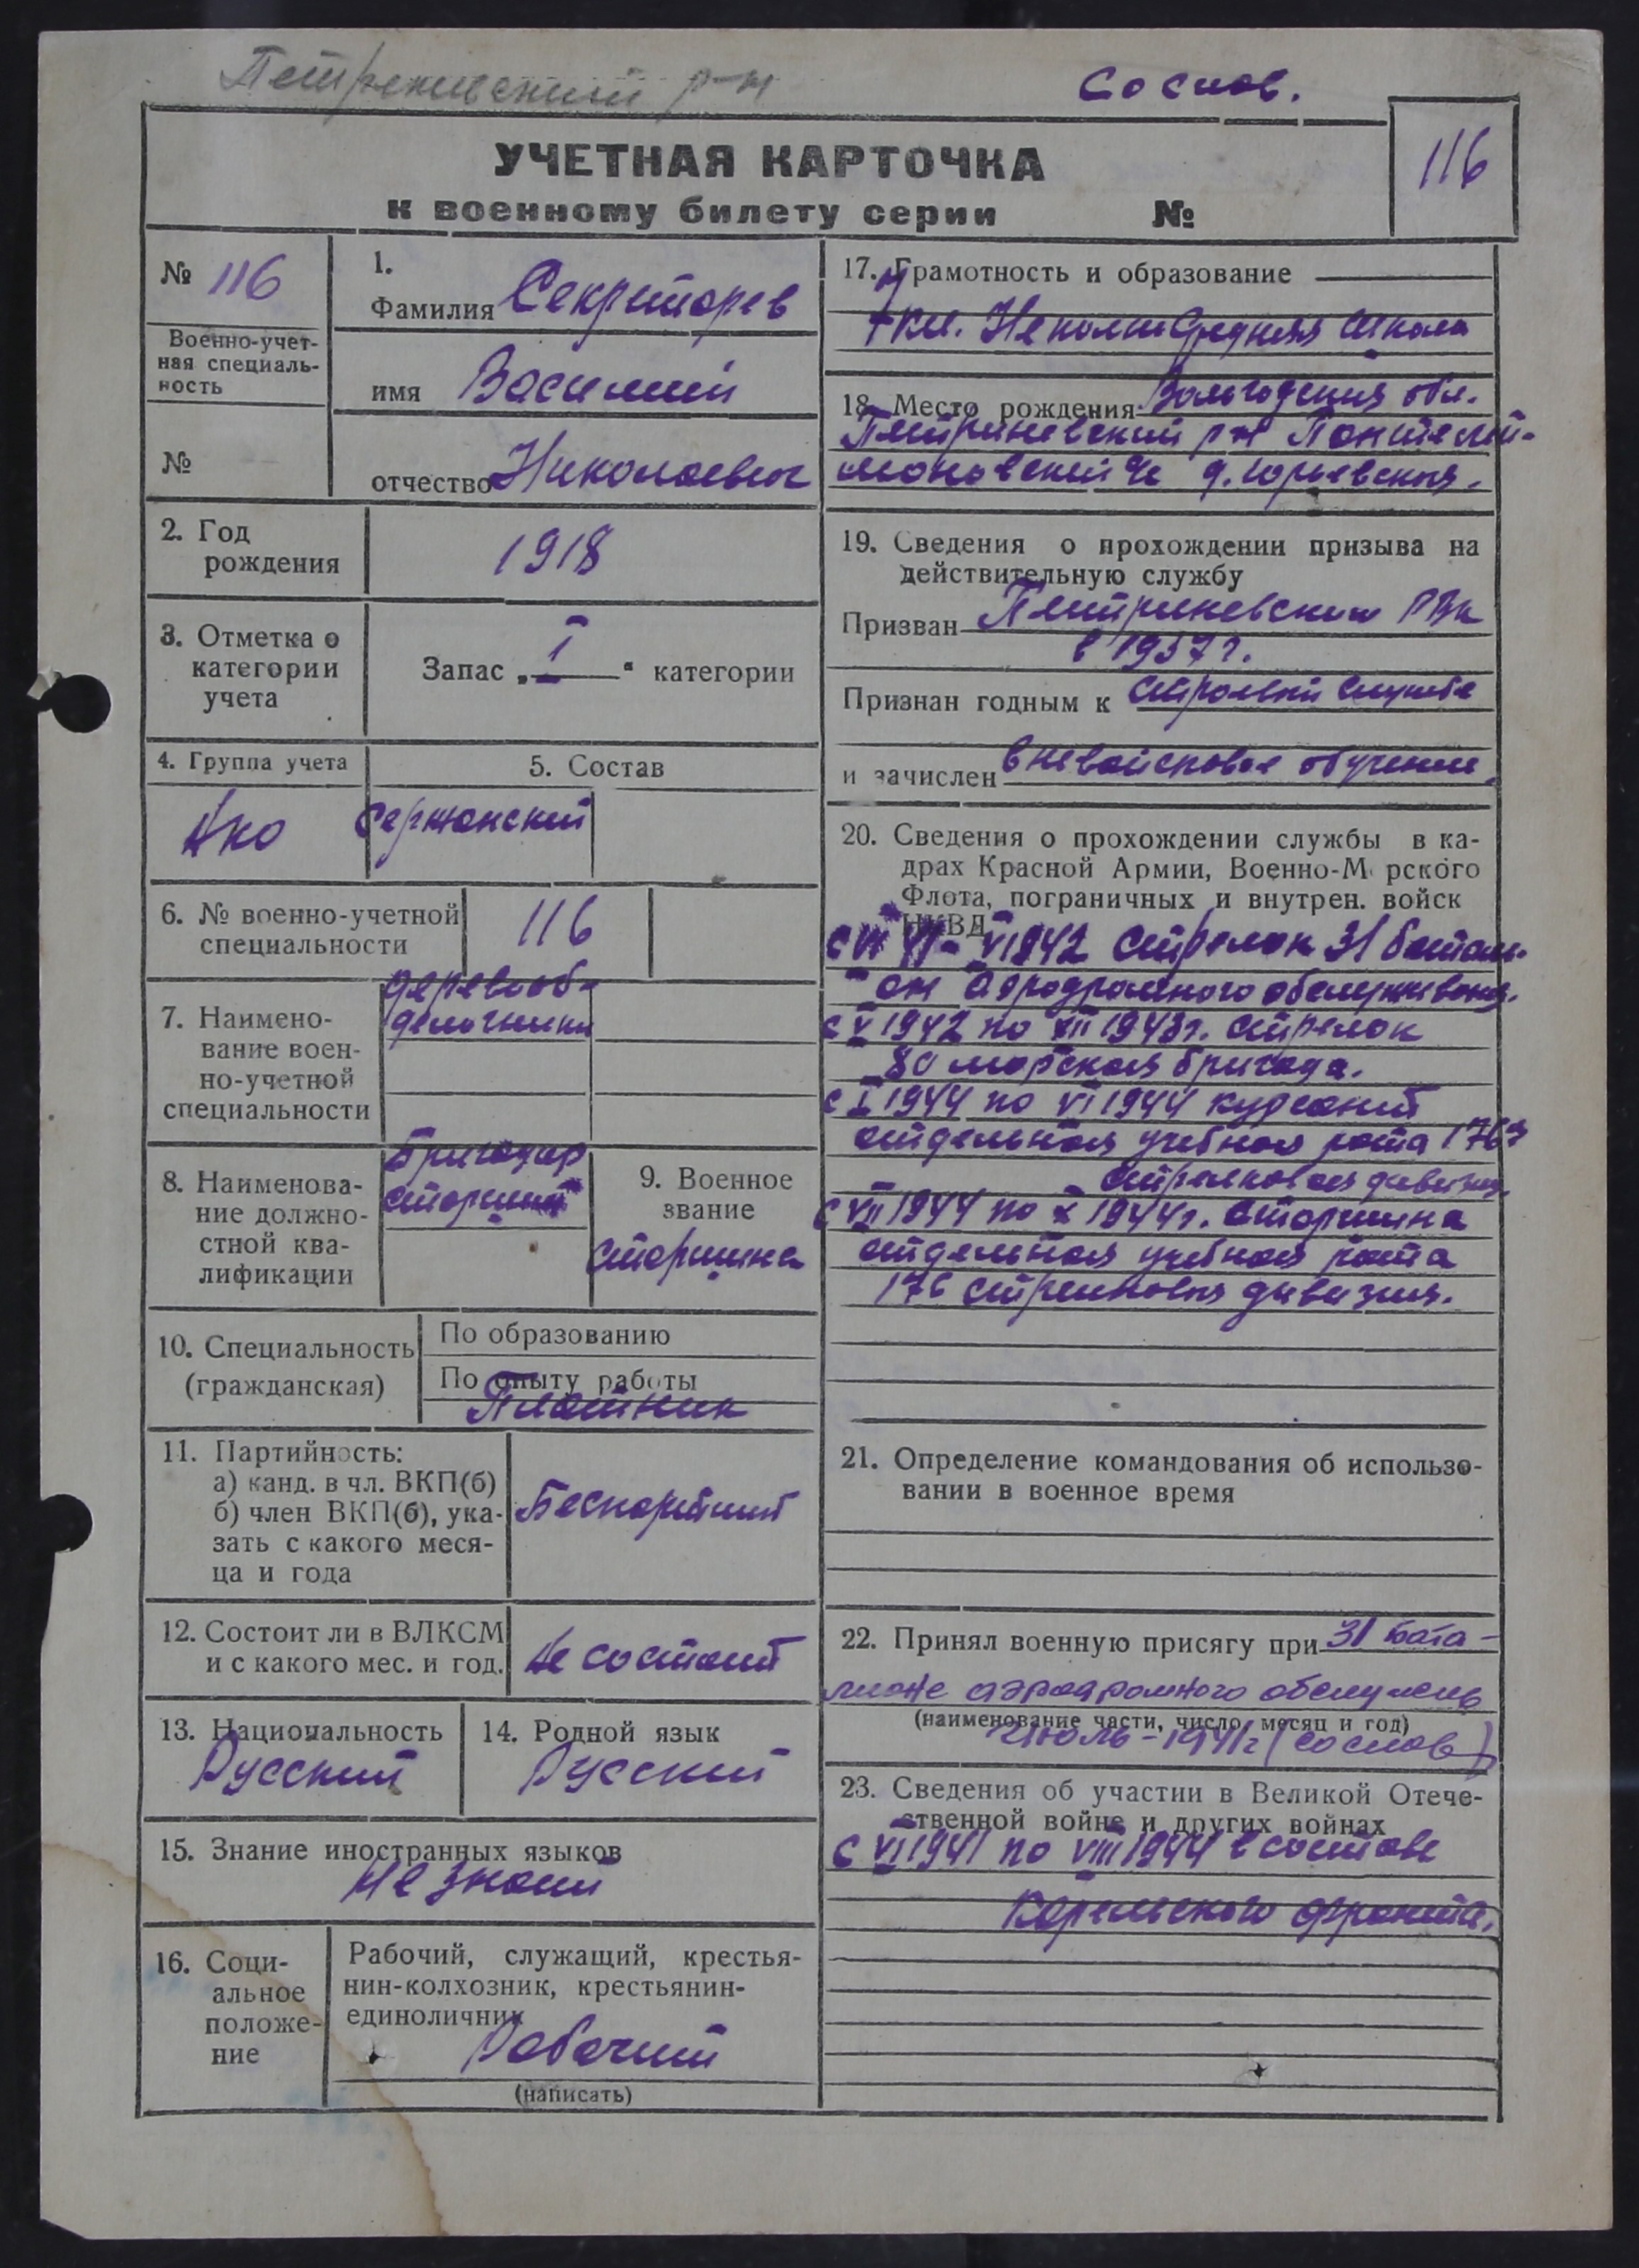 Петреневский р-н
Соснов.
УЧЕТНАЯ КАРТОЧКА
к военному билету серии №
116
№ 116
Военно-учет-
ная специаль-
ность
№
1.
Фамилия Секретарев
имя Василий
отчество Николаевич
2. Год
рождения
1918
3. Отметка о
категории
учета
Запас „ I “ категории
4. Группа учета
Ако
5. Состав
Сержанский
6. № военно-учетной
специальности
116
7. Наимено-
вание воен-
но-учетной
специальности
деревооб-
делочники
8. Наименова-
ние должно-
стной ква-
лификации
Бригадир
старший
9. Военное
звание
старшина
10. Специальность
(гражданская)
По образованию
По опыту работы
Плотник
11. Партийность:
а) канд. в чл. ВКП(б)
б) член ВКП(б), ука-
зать с какого меся-
ца и года
Беспартийный
12. Состоит ли в ВЛКСМ
и с какого мес. и год.
Не состоит
13. Национальность
Русский
14. Родной язык
Русский
15. Знание иностранных языков
Не знает
16. Соци-
альное
положе-
ние
Рабочий, служащий, крестья-
нин-колхозник, крестьянин-
единоличник
Рабочий
(написать)
17. Грамотность и образование
кл. Неполн Средняя школа
18. Место рождения Вологодская обл.
Петриневский р-н Пантелей-
моновский с/с д. Юрьевская.
19. Сведения о прохождении призыва на
действительную службу
Призван Петриневским РВК
в 1937 г.
Признан годным к строевой службе
и зачислен вневойсковое обучение.
20. Сведения о прохождении службы в ка-
драх Красной Армии, Военно-Морского
Флота, пограничных и внутрен. войск
НКВД
1942 стрелок 31 баталь-
он аэродромного обслуживания.
с V 1942 по XII 1943 г. стрелок
80 морская бригада.
с I 1944 по VI 1944 курсант
отдельная учебная рота 176
стрелковая дивизия.
с VII 1944 по X 1944 г. старшина
отдельная учебная рота
176 стрелковая дивизия.
21. Определение командования об использо-
вании в военное время
22. Принял военную присягу при 31 бата-
лионе аэродромного обслужив
(наименование части, число, месяц и год)
июль - 1941 г (соснов)
23. Сведения об участии в Великой Отече-
ственной войне и других войнах
с VI 1941 по VIII 1944 в составе
Карельского фронта.